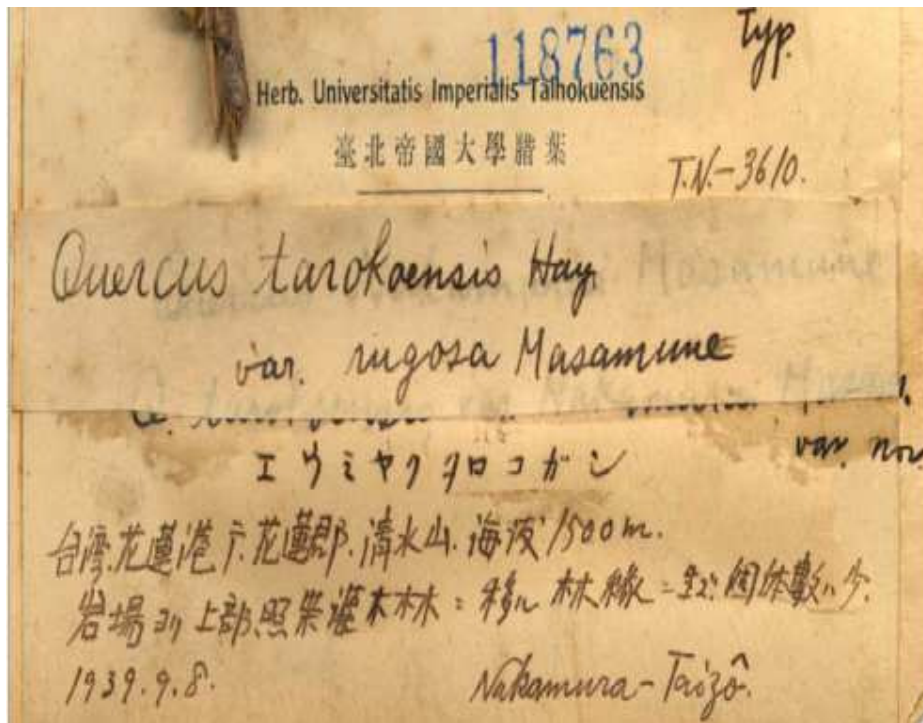 118763
Typ.
Herb. Universitatis Imperialis Taihokuensis
臺北帝國大學腊葉
T.N.-3610.
Quercus tarokoensis Hay.
var. rugosa Masamune
var. nov
エウミヤクタロコガシ
台湾.花蓮港庁.花蓮郡.清水山.海抜1500m.
岩場ヨリ上部照葉灌木林ニ移ル林縁ニ生ズ.個体數ハ少.
1939.9.8.
Nakamura-Taizô.